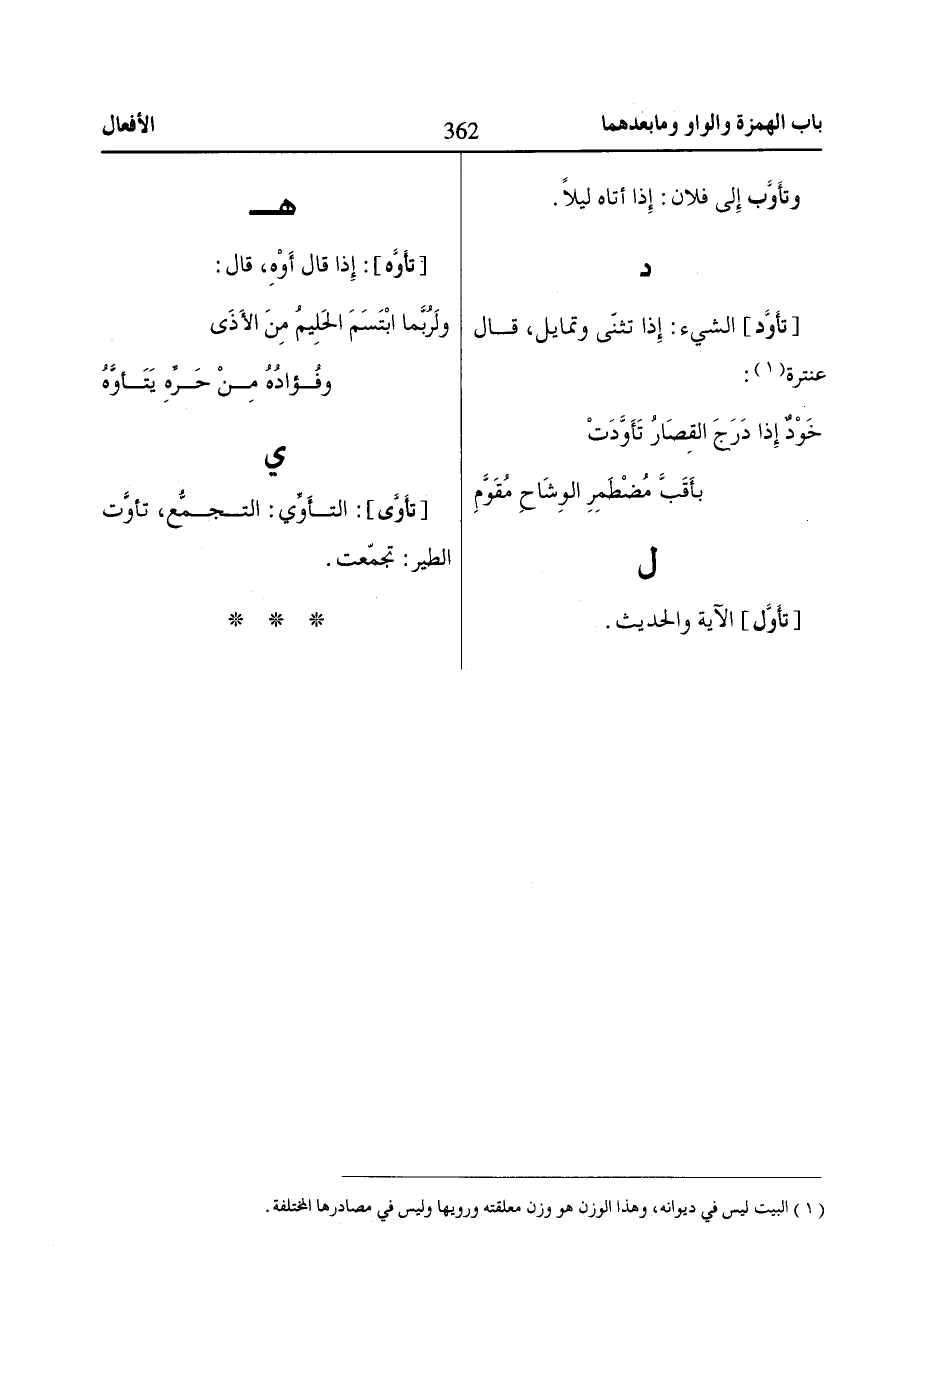 باب الهمزة والواو ومابعدهما
362
الأفعال
وتأوَّب إلى فلان: إذا أتاه ليلاً.
د
[تأوَّد] الشيء: إذا تثنّى وتمايل، قـال
عنترة(١):
خَوْدٌ إذا دَرَجَ القِصَارُ تَأَوَّدَتْ
بأَقَبَّ مُضْطَمِرِ الوِشَاحِ مُقَوَّمِ
ل
[تأوَّل] الآية والحديث.
هـ
[تأوَّه]: إذا قال أَوْهِ، قال:
ولَرُبَّما ابْتَسَمَ الحَلِيمُ مِنَ الأَذَى
وفُـؤادُهُ مِـنْ حَـرِّهِ يَتَـأوَّهُ
ي
[تأوَّى]: التـأوِّي: التـجـمُّع، تأوَّت
الطير: تجمّعت.
* * *
(١) البيت ليس في ديوانه، وهذا الوزن هو وزن معلقته ورويها وليس في مصادرها المختلفة.